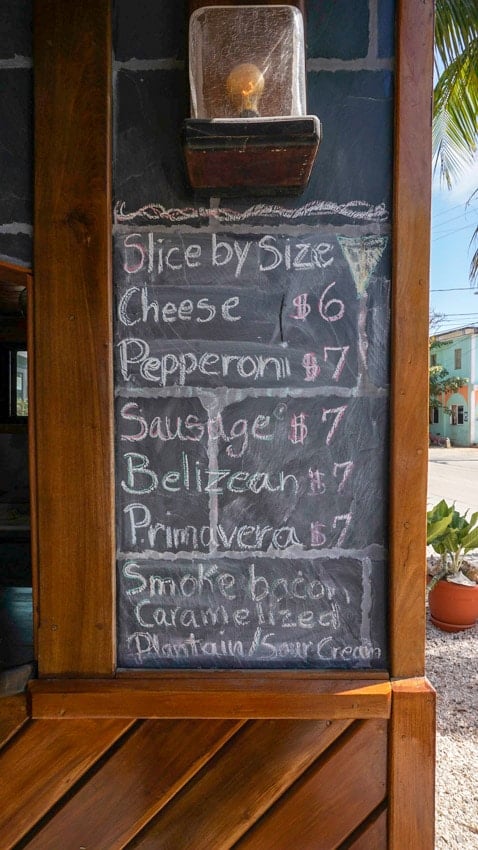 Slice by Size
Cheese $6
Pepperoni $7
Sausage $7
Belizean $7
Primavera $7
Smoke bacon,
Caramelized
Plantain/Sour Cream